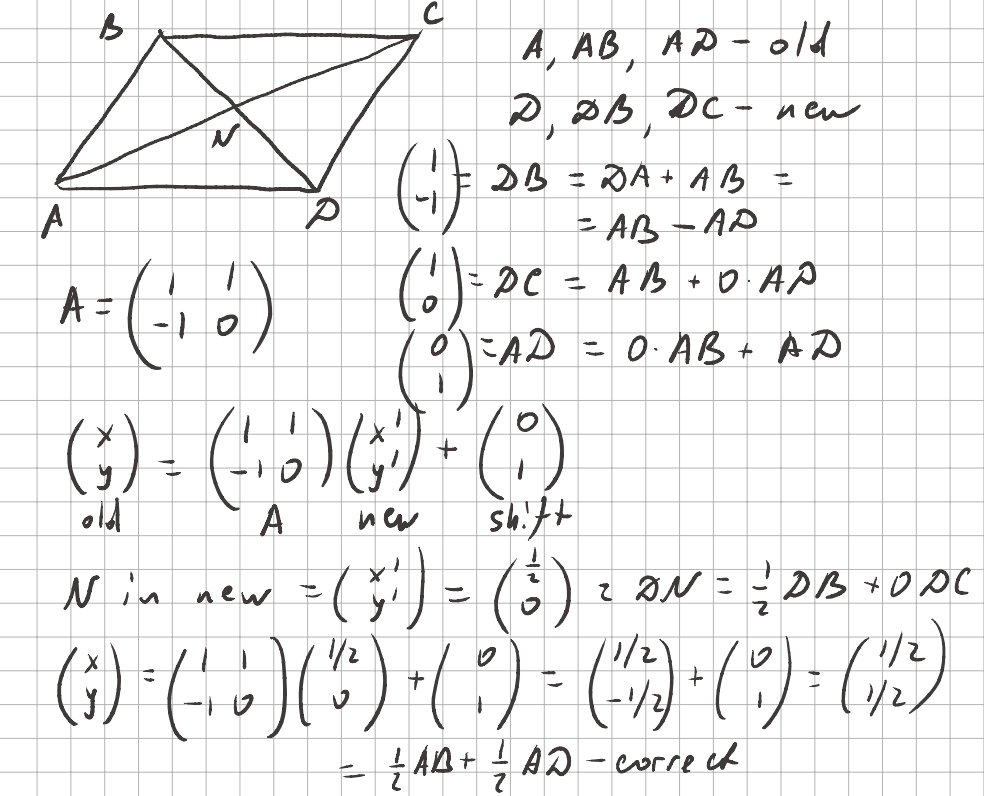 B C
N
A D
A, AB, AD - old
D, DB, DC - new
(1 -1) = DB = DA + AB =
= AB - AD
(1 0) = DC = AB + 0·AD
(0 1) = AD = 0·AB + AD
A = (1 1 -1 0)
(x y) = (1 1 -1 0) (x' y') + (0 1)
old A new shift
N in new = (x' y') = (1/2 0) = DN = 1/2 DB + 0 DC
(x y) = (1 1 -1 0) (1/2 0) + (0 1) = (1/2 -1/2) + (0 1) = (1/2 1/2)
= 1/2 AB + 1/2 AD - correct